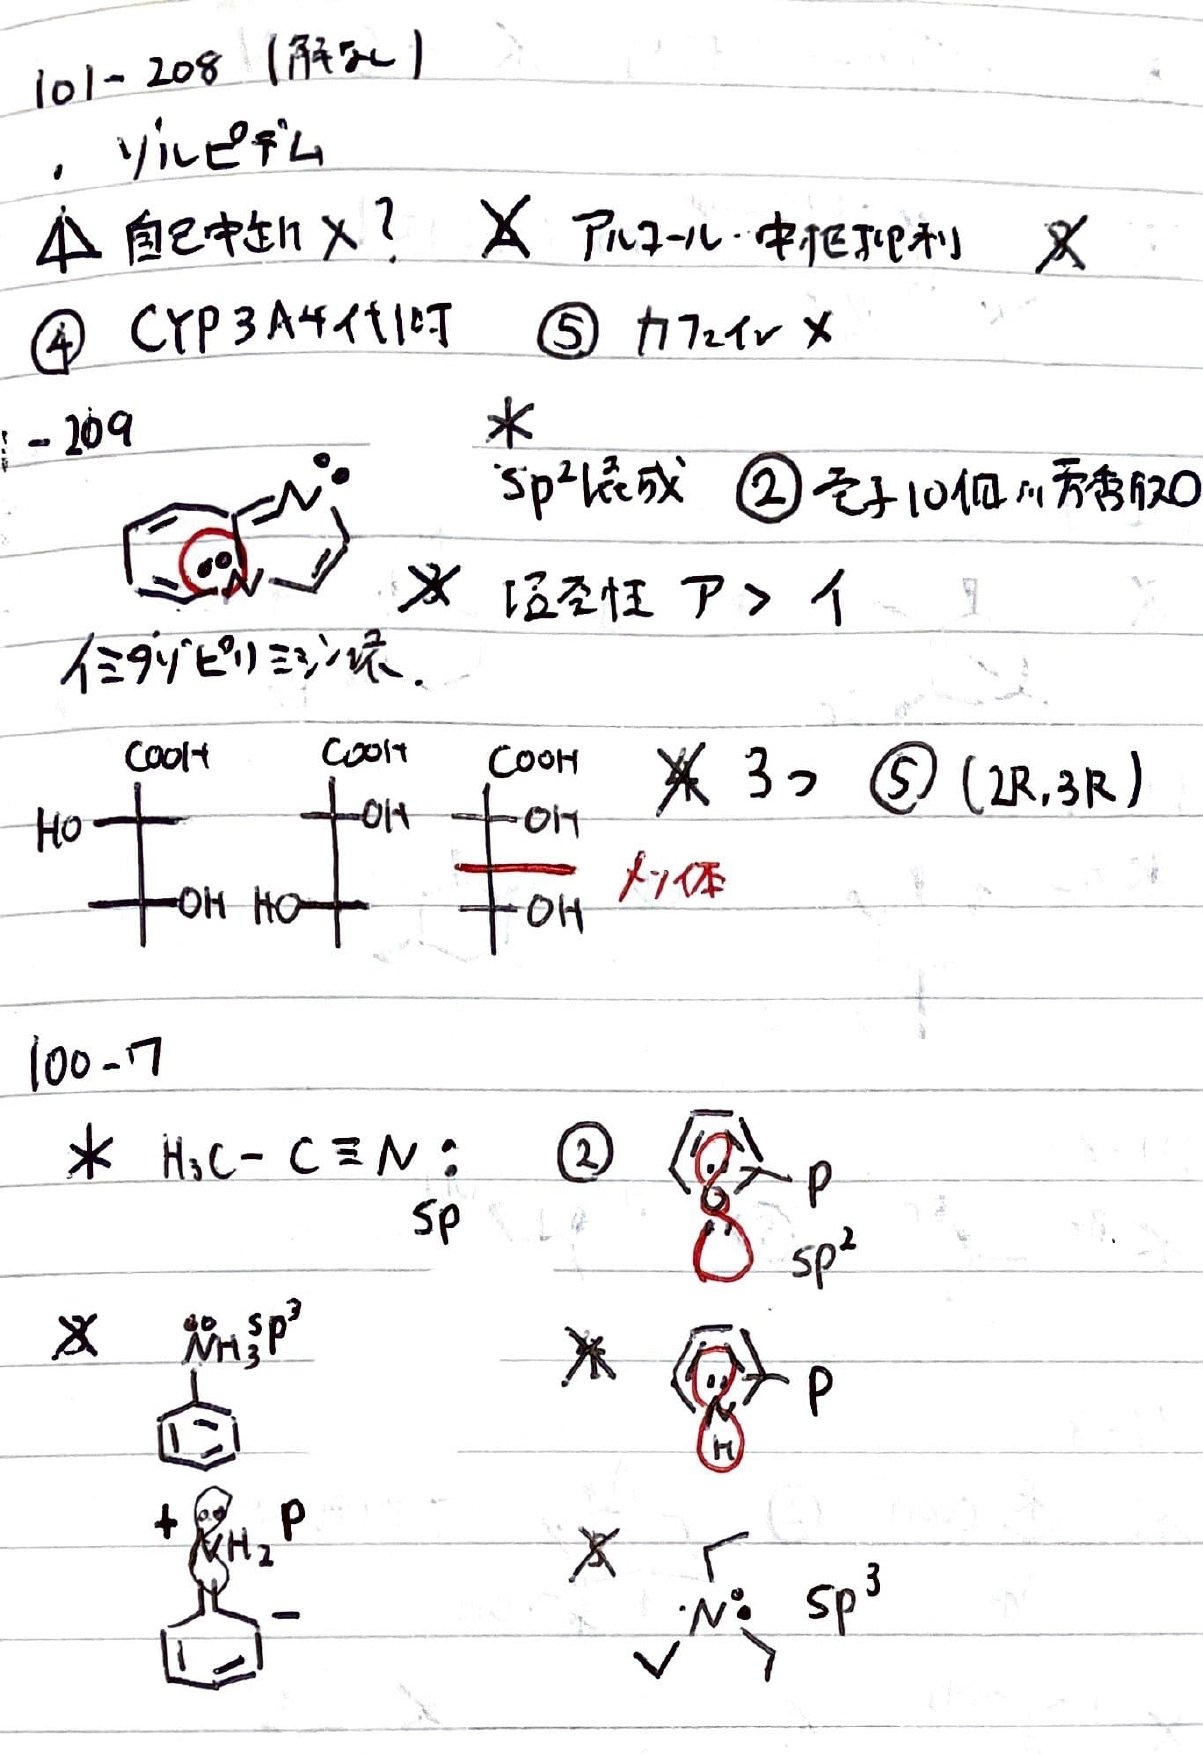 101-208 (解なし)
・ゾルピデム
自己中断 X? アルコール…中枢抑制
④ CYP3A4代謝 ⑤ カフェイン X
-209
N
sp²混成 ② 電子10個 芳香族○
N
塩基性 ア > イ
イミダゾピリミジン環.
COOH COOH COOH
3つ ⑤ (2R,3R)
HO OH OH
メソ体
OH HO OH
100-7
H₃C-C≡N: ② P
sp O sp²
NH₃ sp³
P
N
H
+ NH₂ P
-
N: sp³